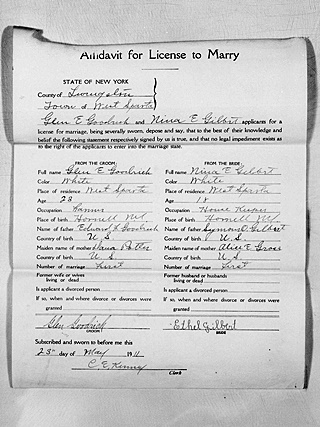 Affidavit for License to Marry
STATE OF NEW YORK
County of Livingston
Town of West Sparta
Glen E Goodrich and Nina E Gilbert applicants for a
license for marriage, being severally sworn, depose and say, that to the best of their knowledge and
belief the following statement respectively signed by us is true, and that no legal impediment exists as
to the right of the applicants to enter into the marriage state.
FROM THE GROOM:
Full name Glen E Goodrich
Color White
Place of residence West Sparta
Age 23
Occupation Farmer
Place of birth Hornell
Name of father Edward Goodrich
Country of birth U S
Maiden name of mother
Country of birth U S
Number of marriage First
Former wife or wives
living or dead
Is applicant a divorced person
If so, when and where divorce or divorces were
granted
Glen Goodrich
GROOM
FROM THE BRIDE:
Full name Nina E Gilbert
Color White
Place of residence West Sparta
Age 18
Occupation House Keeper
Place of birth Hornell
Name of father Gilbert
Country of birth U S
Maiden name of mother Alice E Gross
Country of birth U S
Number of marriage First
Former husband or husbands
living or dead
Is applicant a divorced person
If so, when and where divorce or divorces were
granted
Ethel Gilbert
BRIDE
Subscribed and sworn to before me this
23 day of May 1911
C. E. Kenny
Clerk